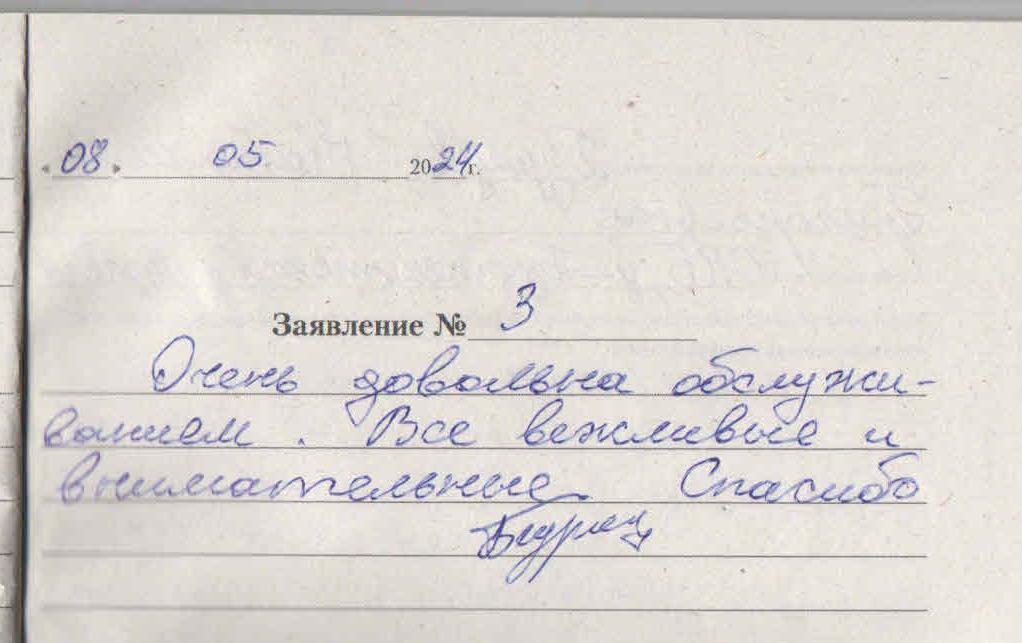 «08» 05 2024г.
Заявление № 3
Очень довольна обслужи-
ванием. Все вежливые и
внимательные. Спасибо